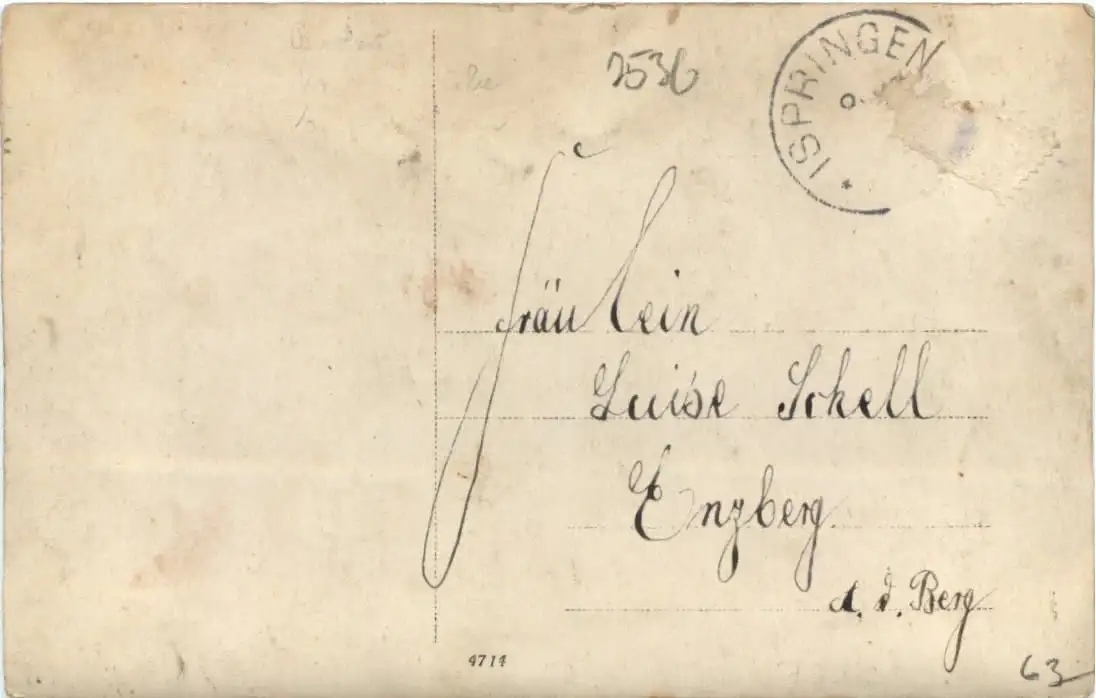 2536
ISPRINGEN
Fräulein
Luise Schell
Enzberg
a. d. Berg
4714
63